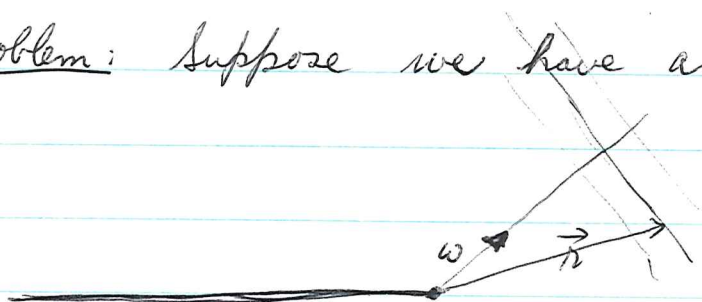 oblem: Suppose we have a
ω
r